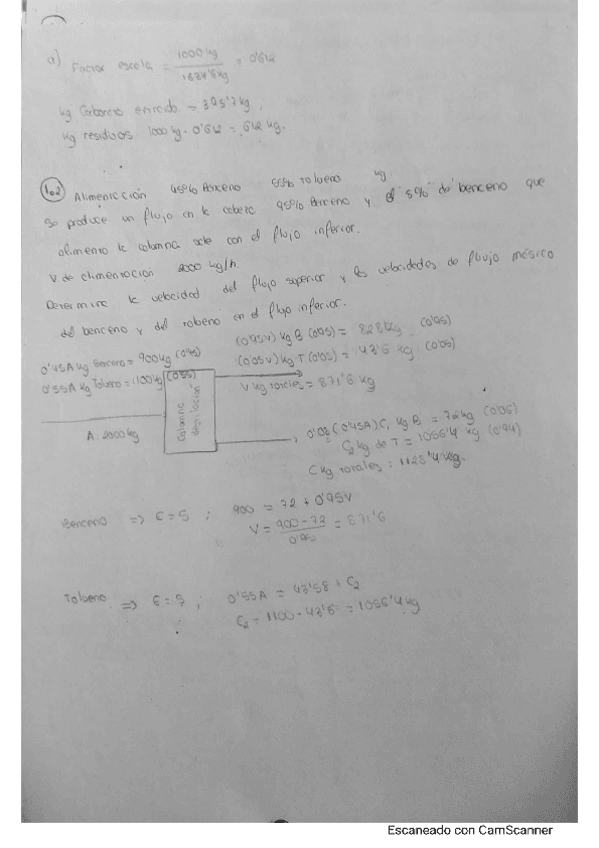 a) Factor escala = 1000 kg / 1634'6 kg = 0'612
kg Carbonato = 395'7 kg.
kg residuos 1000 kg · 0'612 = 612 kg.
10.2 Alimentación 45% Benceno 55% Tolueno kg
Se produce un flujo en la cabeza 95% Benceno y el 8% de benceno que
alimenta la columna sale con el flujo inferior.
V de alimentación 2000 kg/h.
Determine la velocidad del flujo superior y las velocidades de flujo másico
del benceno y del tolueno en el flujo inferior.
0'45A kg Benceno = 900 kg (0'45)
0'55A kg Tolueno = 1100 kg (0'55)
(0'95V) kg B (0'95) = 828 kg (0'95)
(0'05V) kg T (0'05) = 43'6 kg (0'05)
V kg totales = 871'6 kg
A: 2000 kg
Columna destilación
0'08 (0'45A) C, kg B = 72 kg (0'06)
C₂ kg de T = 1056'4 kg (0'94)
C kg totales: 1128'4 kg.
Benceno => E = S ; 900 = 72 + 0'95V
V = 900 - 72 / 0'95 = 871'6
Tolueno => E = S ; 0'55A = 43'58 + C₂
C₂ = 1100 - 43'6 = 1056'4 kg
Escaneado con CamScanner